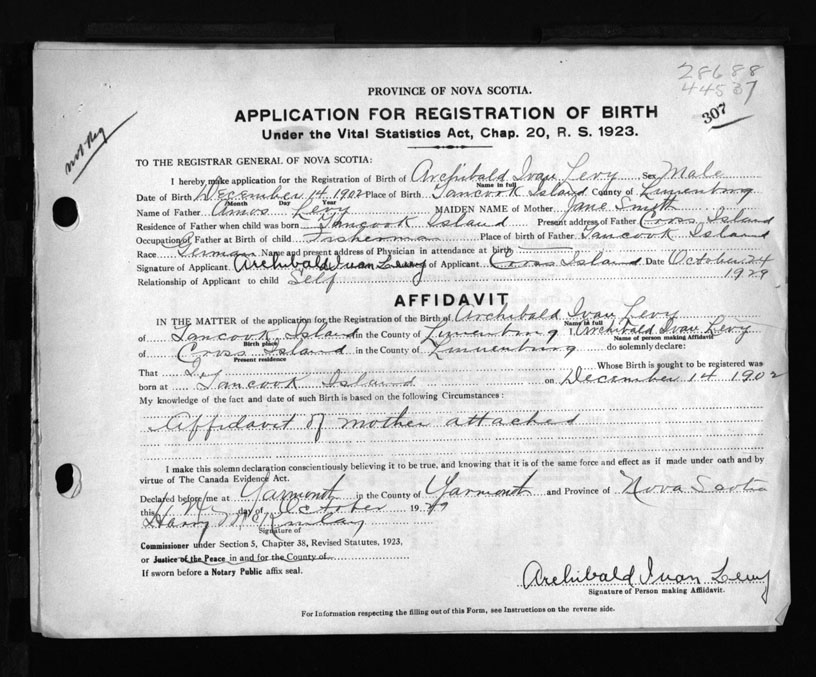 28688
44537
307
not Reg
PROVINCE OF NOVA SCOTIA.
APPLICATION FOR REGISTRATION OF BIRTH
Under the Vital Statistics Act, Chap. 20, R. S. 1923.
TO THE REGISTRAR GENERAL OF NOVA SCOTIA:
I hereby make application for the Registration of Birth of Archibald Ivan Levy Sex Male
Name in full
Date of Birth December 14 1902 Place of Birth Tancook Island County of Lunenburg
Month Day Year
Name of Father Amos Levy MAIDEN NAME of Mother Jane Smith
Residence of Father when child was born Tancook Island Present address of Father Cross Island
Occupation of Father at Birth of child Fisherman Place of birth of Father Tancook Island
Race German Name and present address of Physician in attendance at birth
Signature of Applicant Archibald Ivan Levy of Applicant Cross Island Date October 24
1929
Relationship of Applicant to child Self
AFFIDAVIT
IN THE MATTER of the application for the Registration of the Birth of Archibald Ivan Levy
Name in full
of Tancook Island in the County of Lunenburg I, Archibald Ivan Levy
Birth place Name of person making Affidavit
of Cross Island in the County of Lunenburg do solemnly declare:
Present residence
That I Whose Birth is sought to be registered was
born at Tancook Island on December 14 1902
My knowledge of the fact and date of such Birth is based on the following Circumstances:
Affidavit of mother attached
I make this solemn declaration conscientiously believing it to be true, and knowing that it is of the same force and effect as if made under oath and by
virtue of The Canada Evidence Act.
Declared before me at Yarmouth in the County of Yarmouth and Province of Nova Scotia
this day of October 19 29
Harry
Signature of
Commissioner under Section 5, Chapter 38, Revised Statutes, 1923,
or Justice of the Peace in and for the County of
If sworn before a Notary Public affix seal.
Archibald Ivan Levy
Signature of Person making Affidavit.
For Information respecting the filling out of this Form, see Instructions on the reverse side.